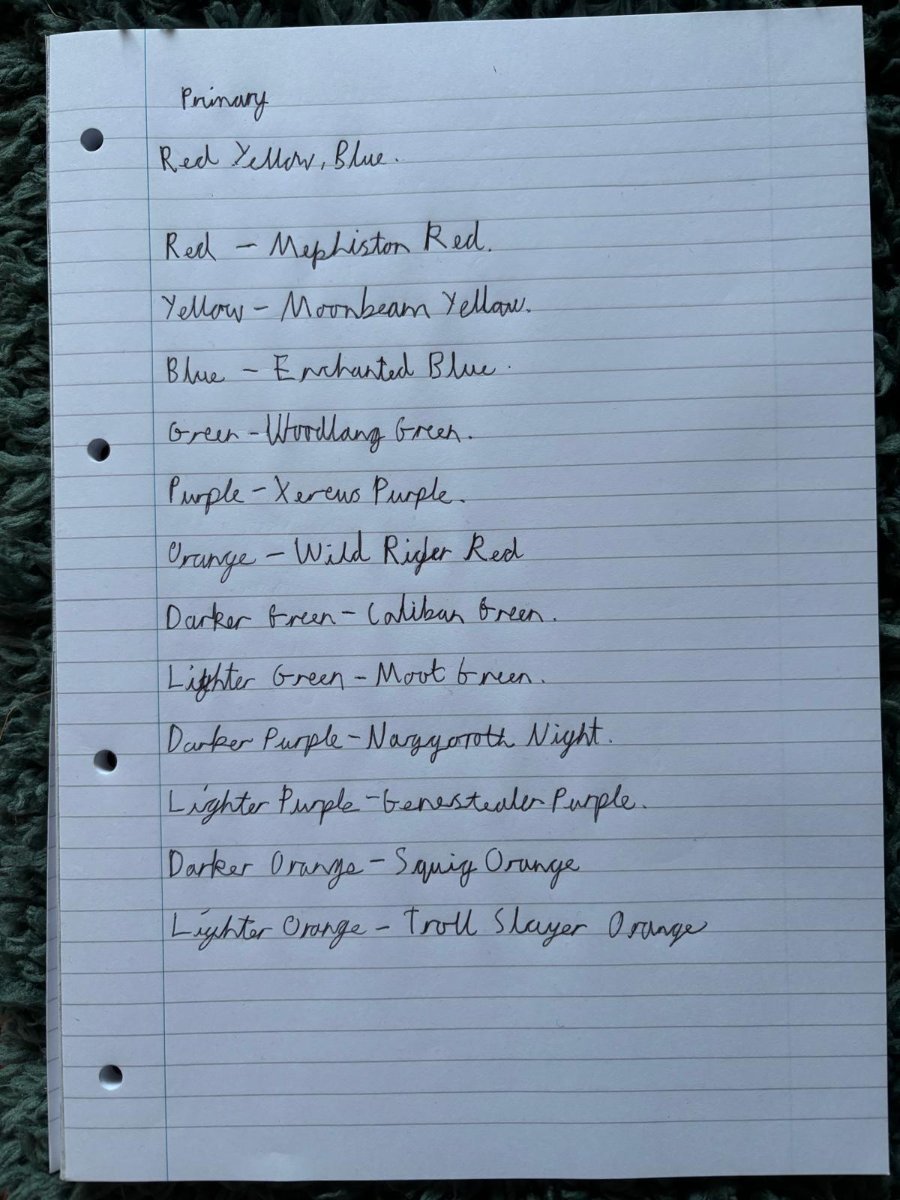 Primary
Red Yellow, Blue.
Red - Mephiston Red.
Yellow - Moonbeam Yellow.
Blue - Enchanted Blue.
Green - Woodlang Green.
Purple - Xereus Purple.
Orange - Wild Rider Red
Darker Green - Caliban Green.
Lighter Green - Moot Green.
Darker Purple - Naggoroth Night.
Lighter Purple - Genestealer Purple.
Darker Orange - Squig Orange
Lighter Orange - Troll Slayer Orange